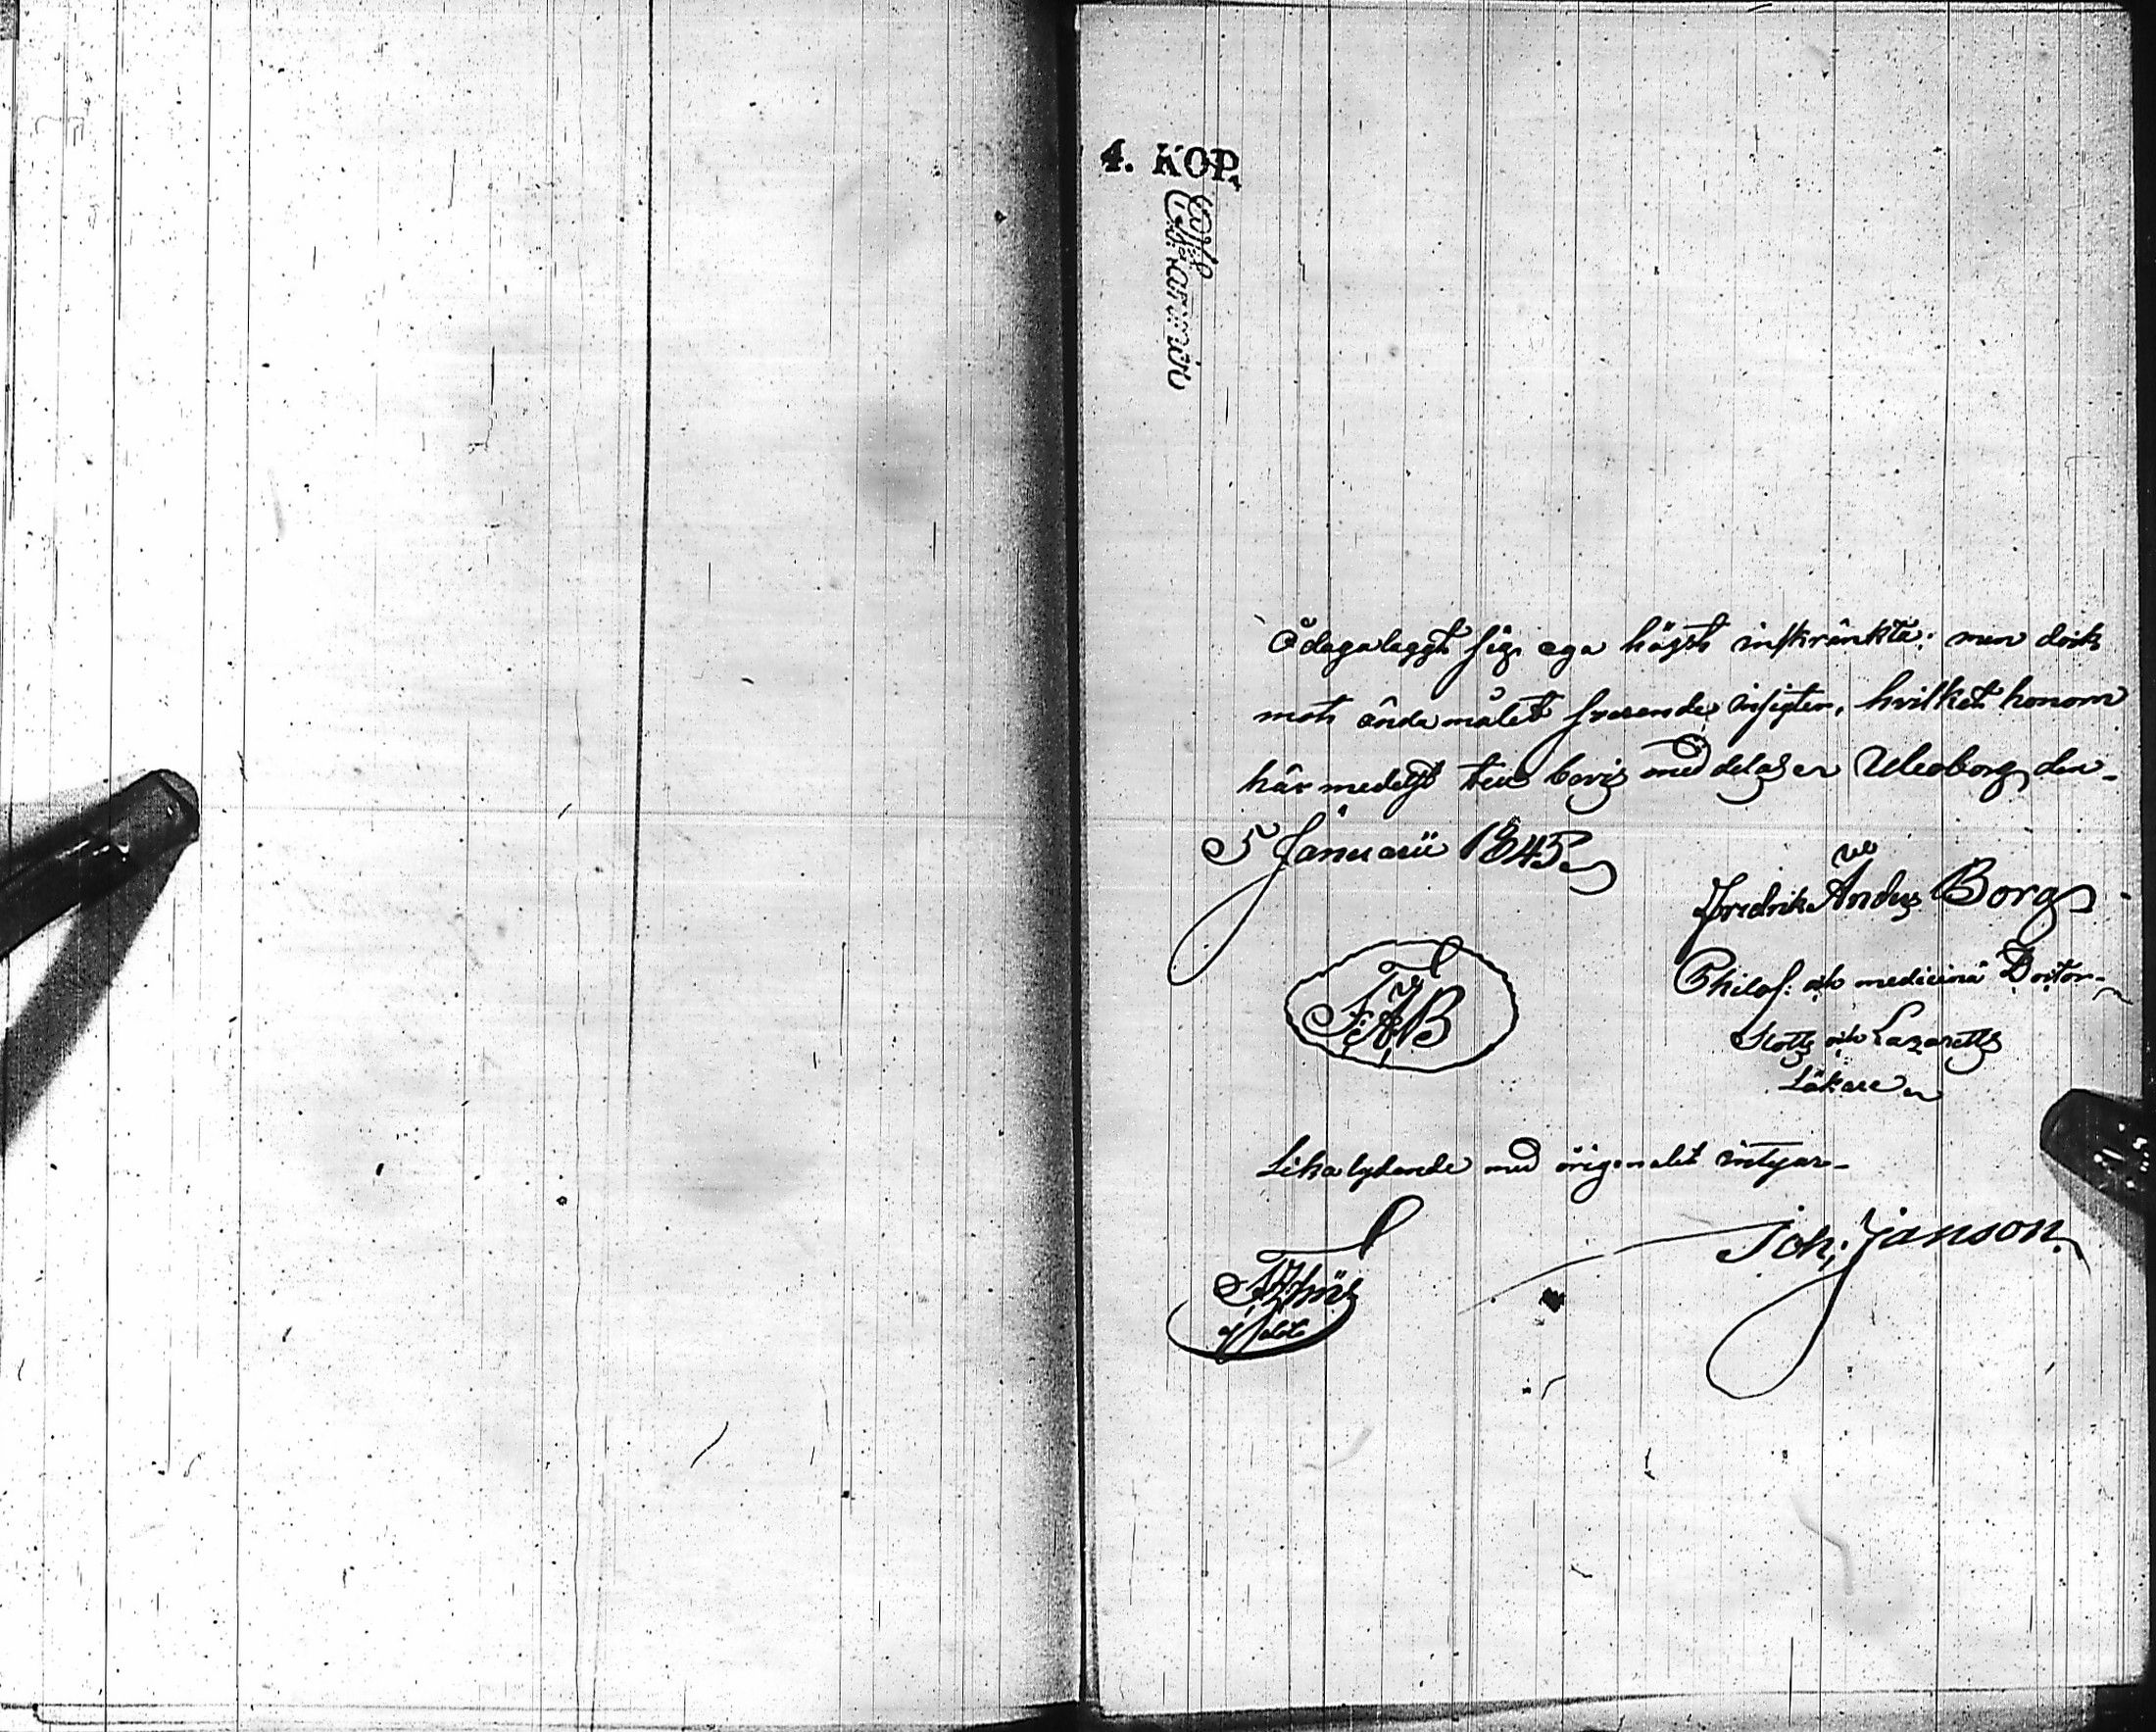 4. KOP.
Ådagalaggt sig ega högst inskränkta; men dock
mot ändamålet svarande insigter, hvilket honom
här medelst till bevis meddelas Uleoborg den
5 Januarii 1845
Fredrik Anders Borg
Philos: och medicinä Doctor
Slotts och Lazaretts
Läkare
FAB
Lika lydande med originalet intygar
Joh: Janson